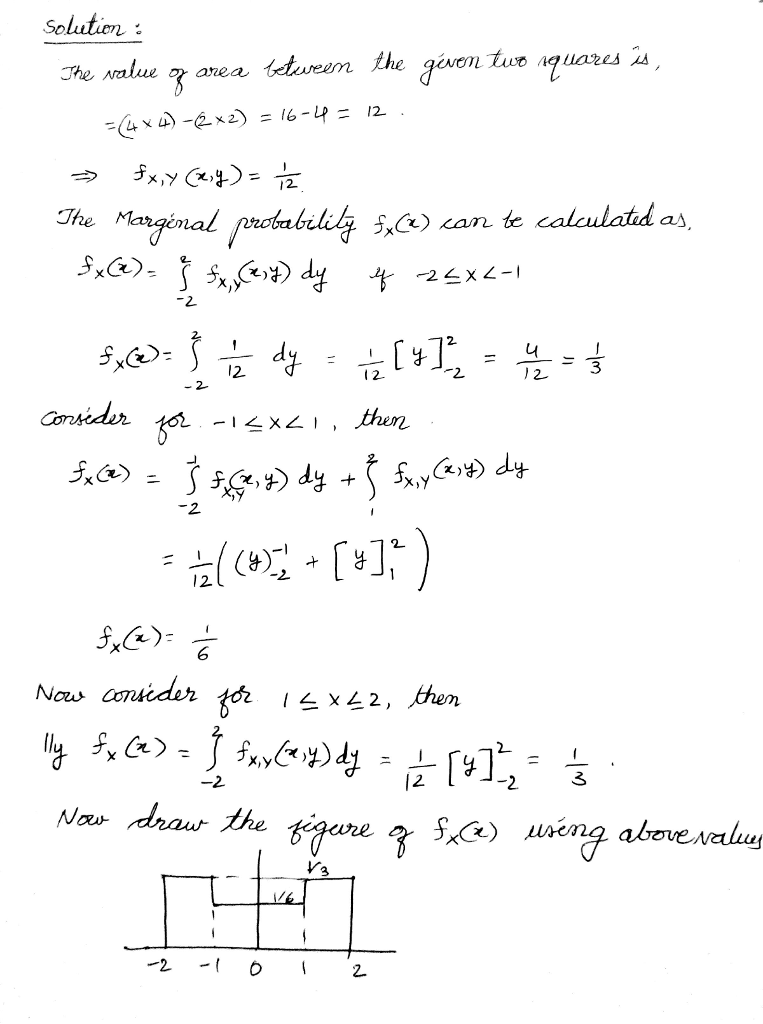 Solution :
The value of area between the given two squares is,
= (4 × 4) - (2 × 2) = 16 - 4 = 12 .
⇒ fX,Y (x,y) = 1/12
The Marginal probability fX(x) can be calculated as,
fX(x) = ∫_{-2}^{2} fX,Y(x,y) dy if -2 ≤ x < -1
fX(x) = ∫_{-2}^{2} 1/12 dy = 1/12 [y]_{-2}^{2} = 4/12 = 1/3
Consider for -1 ≤ x < 1, then
fX(x) = ∫_{-2}^{-1} fX,Y(x,y) dy + ∫_{1}^{2} fX,Y(x,y) dy
= 1/12 ( (y)_{-2}^{-1} + [y]_{1}^{2} )
fX(x) = 1/6
Now consider for 1 ≤ x ≤ 2, then
lly fX(x) = ∫_{-2}^{2} fX,Y(x,y) dy = 1/12 [y]_{-2}^{2} = 1/3 .
Now draw the figure of fX(x) using above values
1/3
1/6
-2 -1 0 1 2